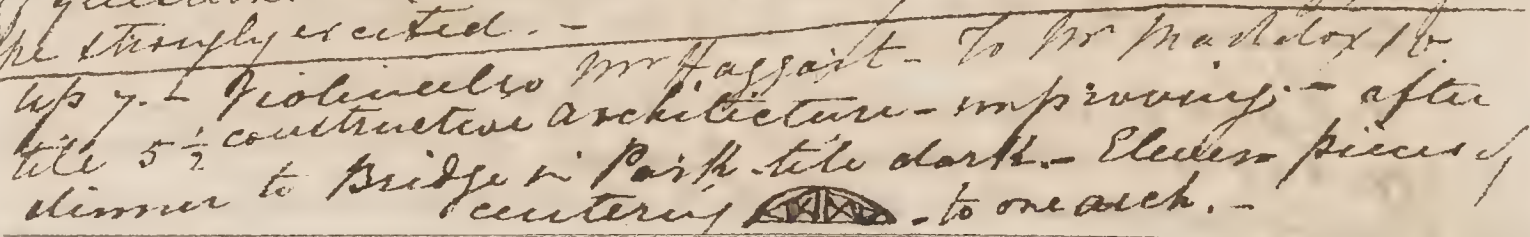 be strongly excited. -
up 7. - Violincelso Mr Haggart - To Mr Maddox 10
till 5½ constructive architecture - improving - after
dinner to Bridge in Park till dark. - Eleven pieces of
centering - to one arch. -